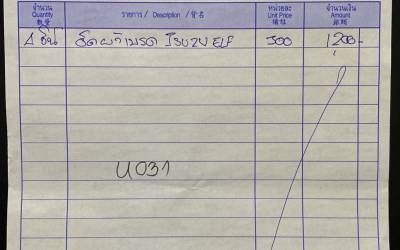 จำนวน รายการ / Description / 品名 หน่วยละ จำนวนเงิน
Quantity Unit Price Amount
数量 単価 金額
4 ชิ้น อัดผ้าเบรค ISUZU ELF 300 1200.-
U031